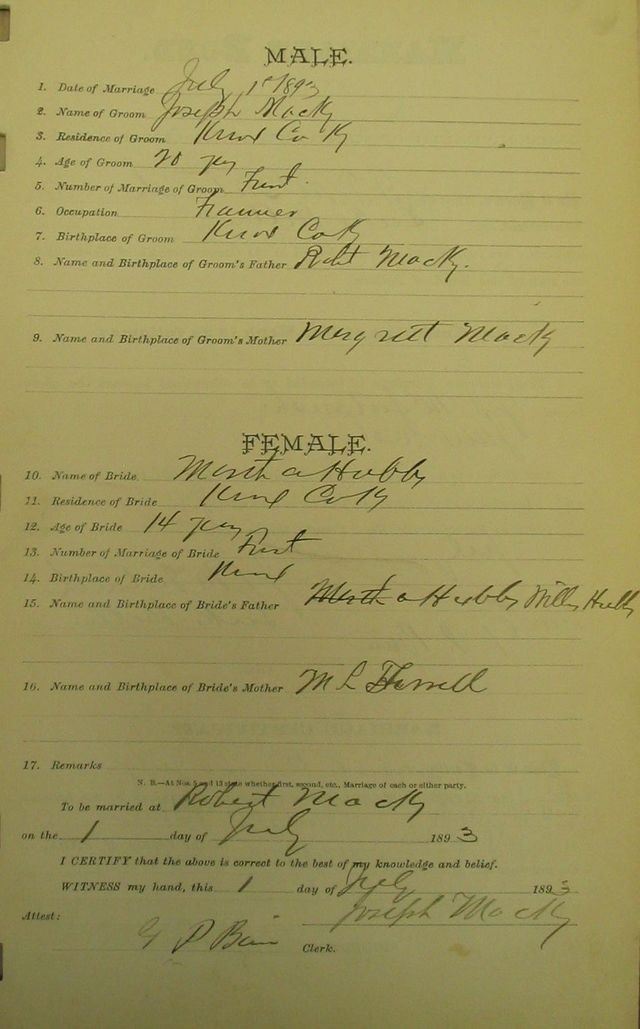 MALE.
1. Date of Marriage July 1st 1893
2. Name of Groom Joseph Macky
3. Residence of Groom Knox Co Ky
4. Age of Groom 20 yrs
5. Number of Marriage of Groom First
6. Occupation Farmer
7. Birthplace of Groom Knox Co Ky
8. Name and Birthplace of Groom's Father Robt Macky.
9. Name and Birthplace of Groom's Mother Macky
FEMALE.
10. Name of Bride. Hubbs
11. Residence of Bride Knox Co Ky
12. Age of Bride 14 years
13. Number of Marriage of Bride First
14. Birthplace of Bride Knox
15. Name and Birthplace of Bride's Father a Hubbs Hubbs
16. Name and Birthplace of Bride's Mother M L
17. Remarks
N. B.—At Nos. 5 and 13 state whether first, second, etc., Marriage of each or either party.
To be married at Robert Macky
on the 1 day of July 1893
I CERTIFY that the above is correct to the best of my knowledge and belief.
WITNESS my hand, this 1 day of July 1893
Joseph Macky
Attest:
G P Bain Clerk.